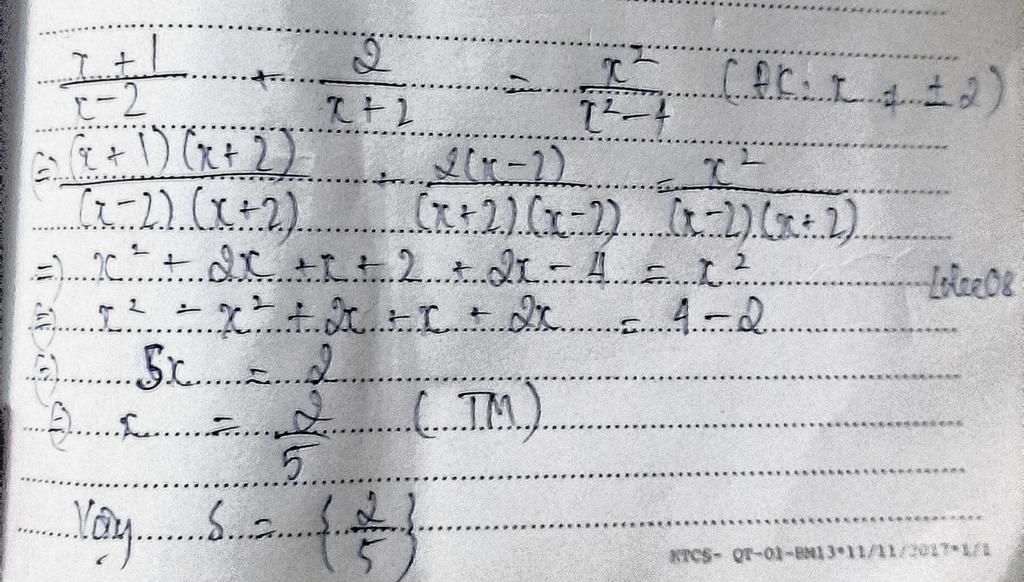 x+1/x-2 + 2/x+2 = x²/x²-4 (ĐK: x ≠ ±2)
⇔ (x+1)(x+2)/(x-2)(x+2) + 2(x-2)/(x+2)(x-2) = x²/(x-2)(x+2)
⇒ x² + 2x + x + 2 + 2x - 4 = x²
⇔ x² - x² + 2x + x + 2x = 4 - 2
⇔ 5x = 2
⇔ x = 2/5 (TM)
Vậy S = {2/5}
KTCS- QT-01-BM13*11/11/2017*1/1